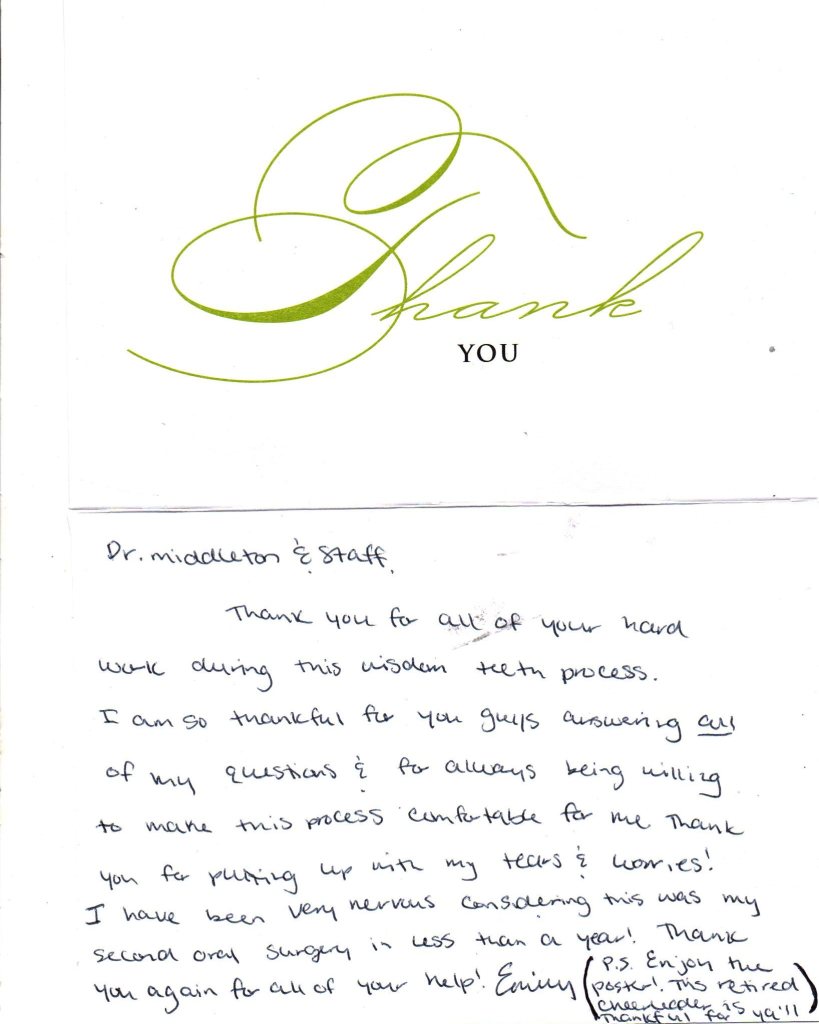 Thank
YOU
Dr. Middleton & Staff,
Thank you for all of your hard
work during this wisdom teeth process.
I am so thankful for you guys answering all
of my questions & for always being willing
to make this process comfortable for me Thank
you for putting up with my tears & worries!
I have been very nervous considering this was my
second oral surgery in less than a year! Thank
you again for all of your help! Emily
(P.S. Enjoy the
poster! This retired
cheerleader is
thankful for ya'll)